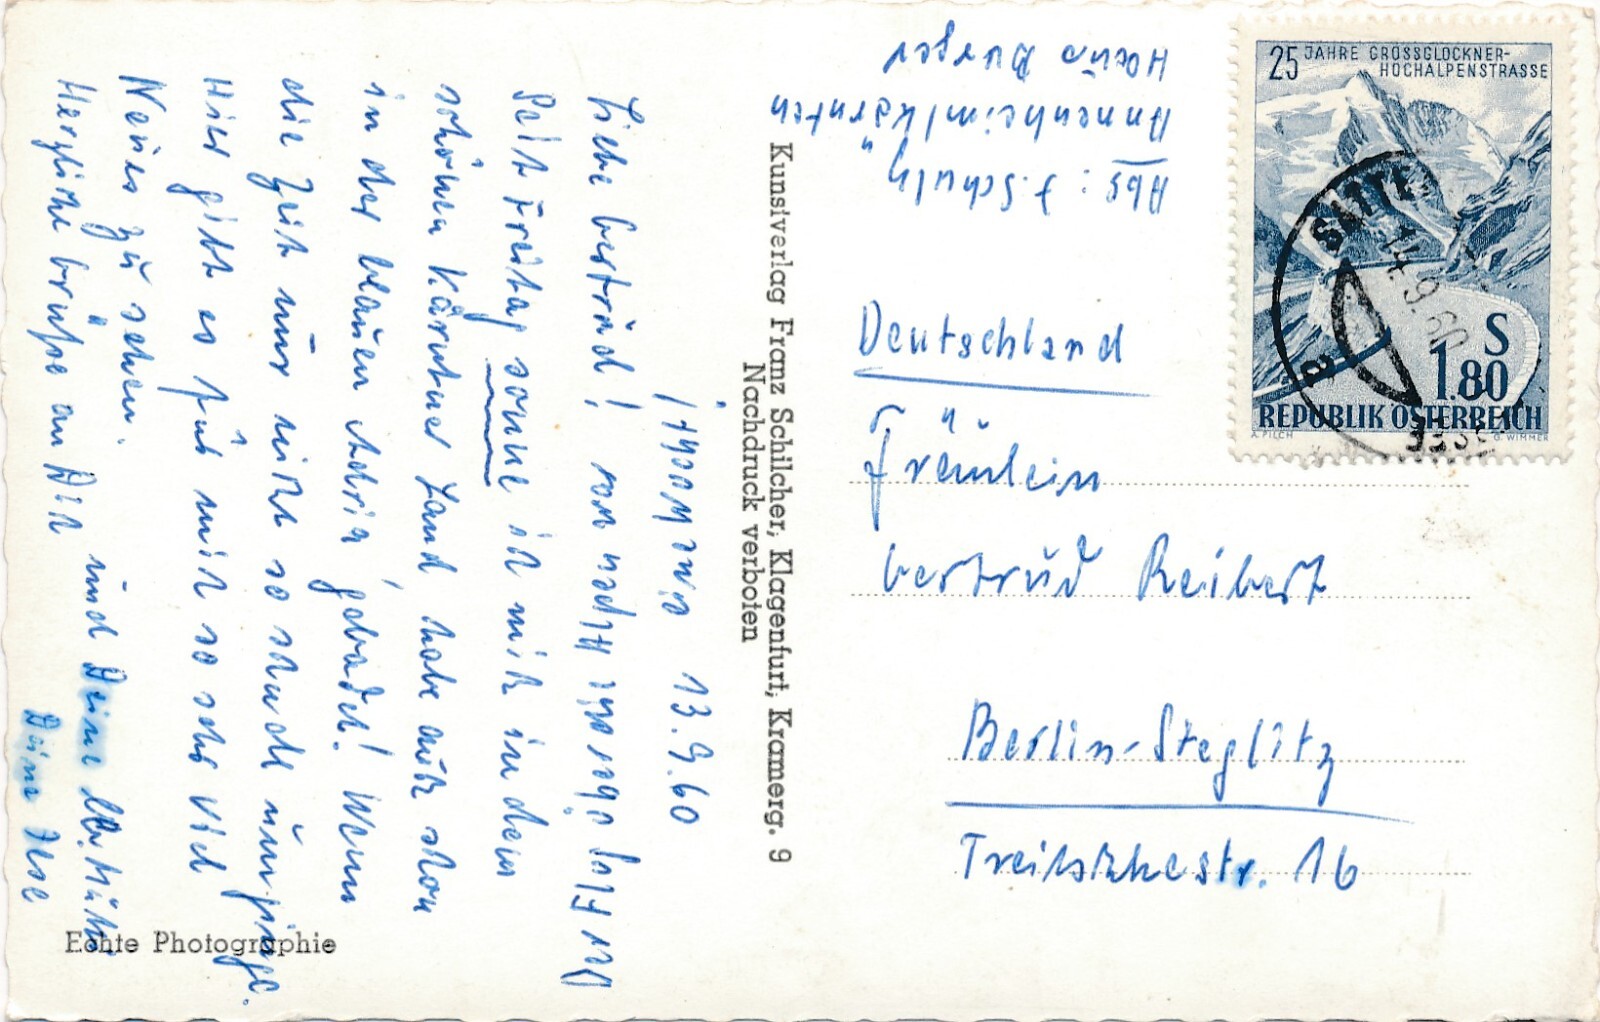 25 JAHRE GROSSGLOCKNER-
HOCHALPENSTRASSE
S
1.80
REPUBLIK ÖSTERREICH
A. PILCH
G. WIMMER
14.9.60
Abs:
Annenheim/Kärnten
Haus Burger
Deutschland
Fräulein
Gertrud Reibert
Berlin-Steglitz
Treitschkestr. 16
Kunstverlag Franz Schilcher, Klagenfurt, Kramerg. 9
Nachdruck verboten
13.9.60
Liebe Gertrud!
Seit Freitag sonne ich mich in dem
schönen Kärntner Land, habe auch schon
in der blauen Adria gebadet! Wenn
die Zeit nur nicht so schnell
Hier gibt es für mich so sehr viel
Neues zu sehen.
Herzliche Grüße an Dich
und Deine
Deine Ilse
Der Flug über Alpen war
Echte Photographie